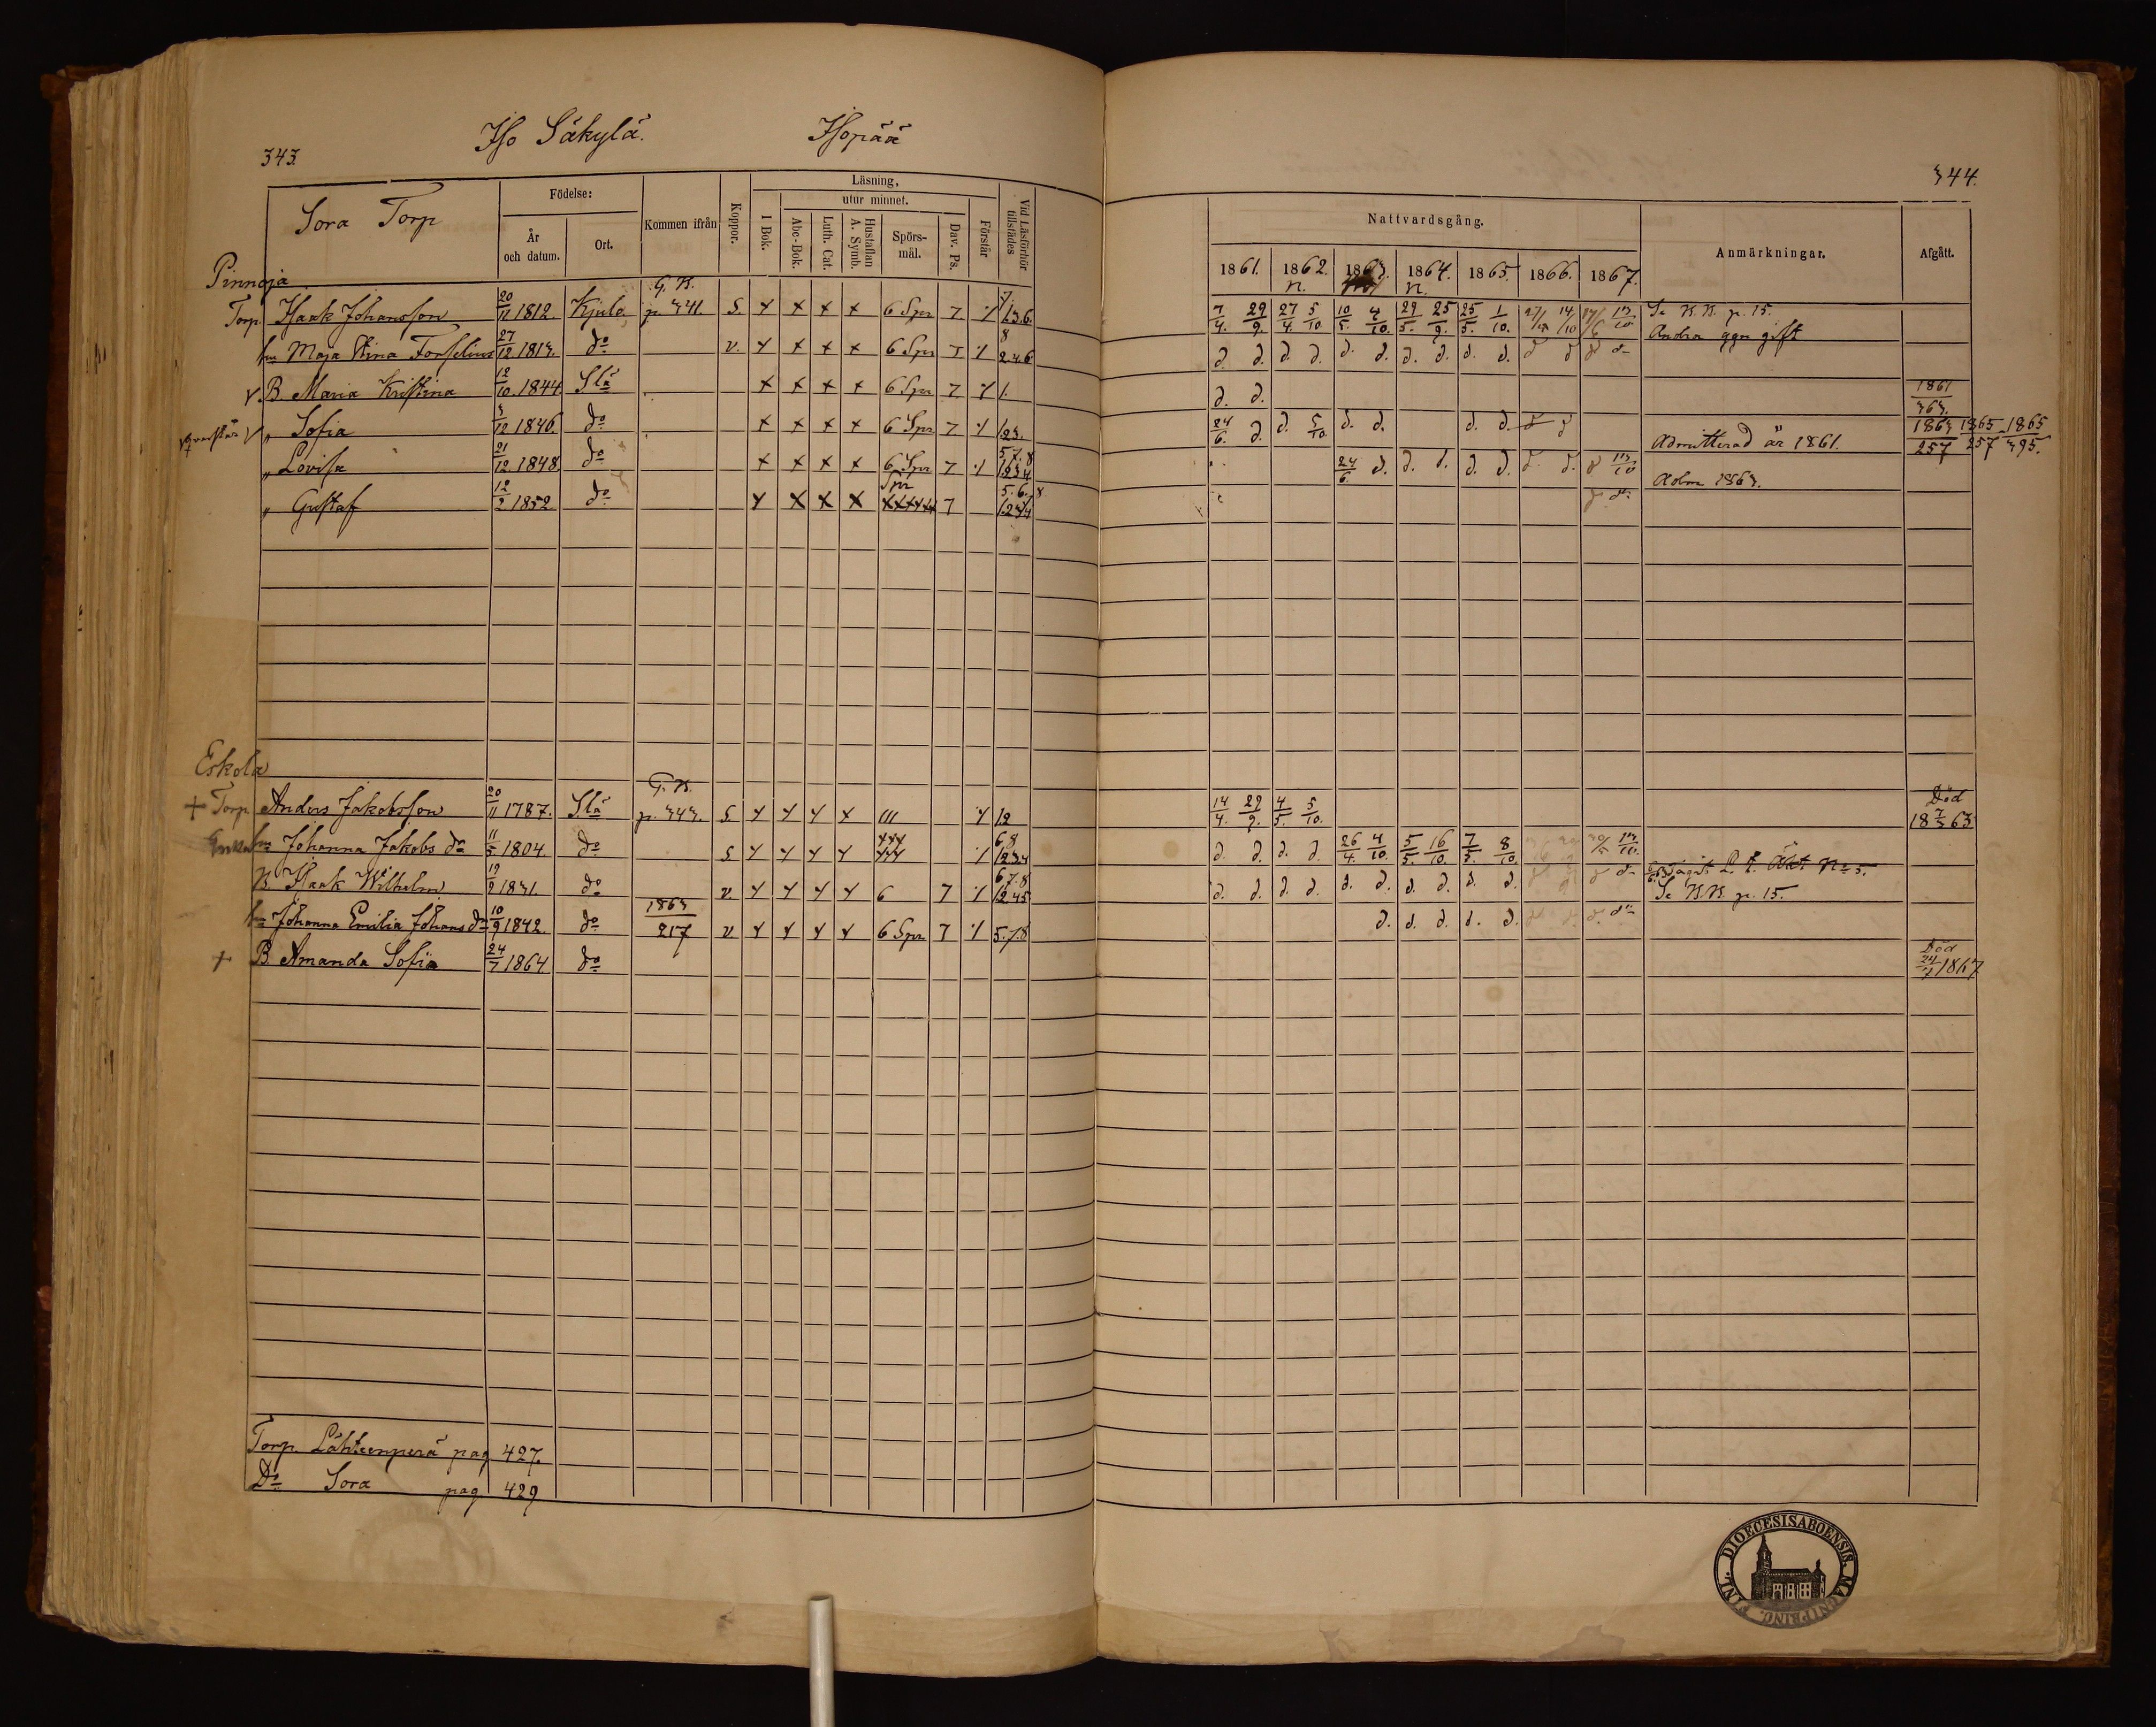 343.
Iso Säkylä. Isopää
Sora Torp
Födelse:
År och datum.
Ort.
Kommen ifrån
Koppor.
Läsning,
I Bok.
utur minnet.
Abc-Bok.
Luth. Cat.
Hustaflan A. Symb.
Spörsmål.
Dav. Ps.
Förstår
Vid Läsförhör tillstädes
Pinnoja
Torp. Isaak Johansson 20/11 1812. Kjulo G. B. p. 341. S. x x x x 6 Spr 7
hu Maja Stina Forselius 27/12 1813. do v. x x x x 6 Spr 7
B. Maria Kristina 12/10 1844 Slä x x x x 6 Spr 7 1.
" Sofia 3/12 1846. do x x x x 6 Spr 7 123.
" Lovisa 21/12 1848. do x x x x 6 Spr 7
" Gustaf 12/2 1852 do x x x x Spr xxxxxx 7
Eskola
+ Torp. Anders Jakobsson 20/11 1787. Slä G. B. p. 343. S. x x x x III 12
Enka hu Johanna Jakobs dr 11/5 1804. do S x x x x xxx xxx
B Isaak Wilhelm 19/2 1831. do v. x x x x 6 7
hu Johanna Emilia Johans dr 10/9 1842. do 1863/217 v x x x x 6 Spr 7 5.7.8
+ B Amanda Sofia 24/7 1864 do
Torp. Lähteenperä pag 427.
Do Sora pag 429
344.
Nattvardsgång.
1861. 1862. 1863. 1864. 1865. 1866. 1867.
n. n.
Anmärkningar.
Afgått.
7/4. 29/9. 27/4. 5/10. 10/5. 4/10. 29/5. 25/9. 25/5. 1/10. Se B. B. p. 15.
d. d. d. d. d. d. d. d. d. d. d d d do Andra ggn gift
d. d. 1861/363.
24/6. d. d. 5/10 d. d. d. d. d d Admitterad år 1861. 1863/257 1865/257 1865/395.
24/6. d. d. d. d. d. d. d. Adm 1863.
d do
14/4. 29/9. 4/5. 5/10. Död 18 7/3 63
d. d. d. d. 26/4. 4/10. 5/5. 16/10. 7/5. 8/10.
d. d. d. d. d. d. d. d. d. d. Se B.B. p. 15.
d. d. d. d. d. d. d. d. do
Död 24/4 1867
FINL. DIOECESIS ABOENSIS. MAGNI PRINC.